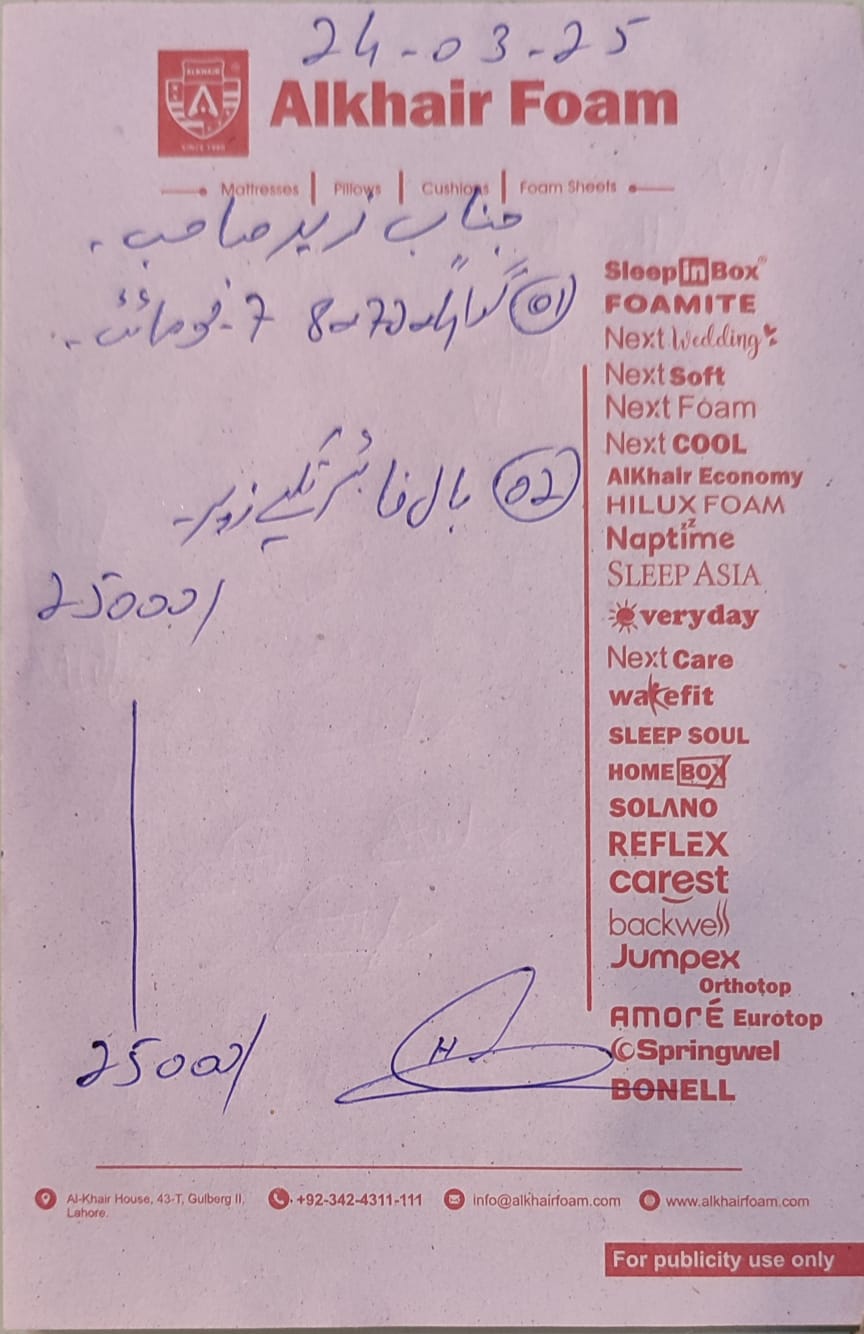 24-03-25
ALKHAIR
SINCE 1990
Alkhair Foam
Mattresses | Pillows | Cushions | Foam Sheets
جناب زبیر صاحب
01 گدا 78x72x4 7
02 بال فائبر تکیے
25000/
25000/
Sleep in Box
FOAMITE
Next Wedding
Next Soft
Next Foam
Next COOL
AlKhair Economy
HILUX FOAM
Naptime
SLEEP ASIA
everyday
Next Care
wakefit
SLEEP SOUL
HOME BOX
SOLANO
REFLEX
carest
backwell
Jumpex
Orthotop
AMORÉ Eurotop
Springwel
BONELL
Al-Khair House, 43-T, Gulberg II, Lahore.
+92-342-4311-111
info@alkhairfoam.com
www.alkhairfoam.com
For publicity use only